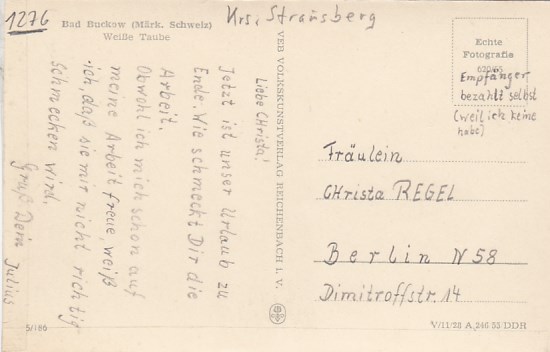 1276
Bad Buckow (Märk. Schweiz)
Weiße Taube
Krs. Strausberg
Liebe CHrista!
Jetzt ist unser Urlaub zu
Ende. Wie schmeckt Dir die
Arbeit.
Obwohl ich mich schon auf
meine Arbeit freue, weiß
ich, daß sie mir nicht richtig
schmecken wird.
Gruß Dein Julius
5/186
VEB VOLKSKUNSTVERLAG REICHENBACH I. V.
Echte
Fotografie
620/65
Empfänger
bezahlt selbst
(weil ich keine
habe)
Fräulein
CHrista REGEL
Berlin N 58
Dimitroffstr. 14
V/11/28 A 246 55 DDR